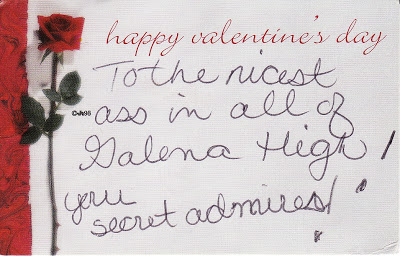 happy valentine's day
To the nicest
ass in all of
©vh98
Galena High!
your
secret admirer!!